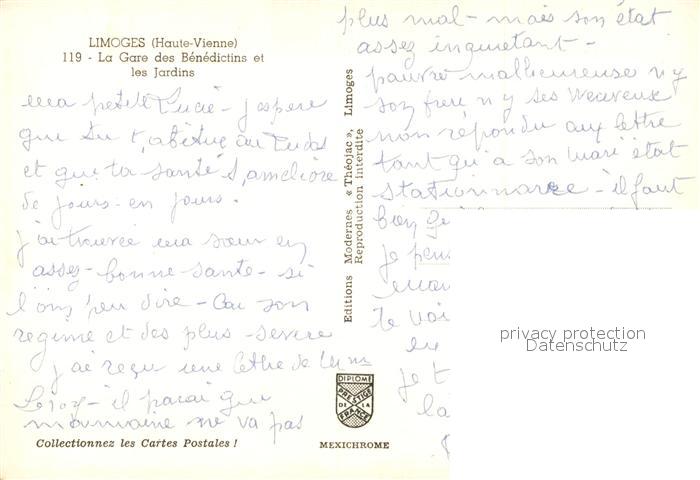 LIMOGES (Haute-Vienne)
119 - La Gare des Bénédictins et
les Jardins
ma petite Lucie - j'espere
que tu t'abitue au
et que ta santé s'améliore
de jours en jours.
j'ai trouvée ma sœur en
assez - bonne - sante - si
l'on peu dire - Car son
regime et des plus - severe
j'ai reçu une lettre de
Leroy - il parai que
ne va pas
Collectionnez les Cartes Postales !
Editions Modernes « Théojac », Limoges
Reproduction interdite
DIPLOME
PRESTIGE
DE LA
FRANCE
MEXICHROME
plus mal - mais son état
assez inquietant -
pauvre malheureuse n'y
son frere n'y ses neuveux
non répondu aux lettre
tant qu'a son mari état
stationnaire - il faut
bien
je pens
te voi
je t
la
privacy protection
Datenschutz